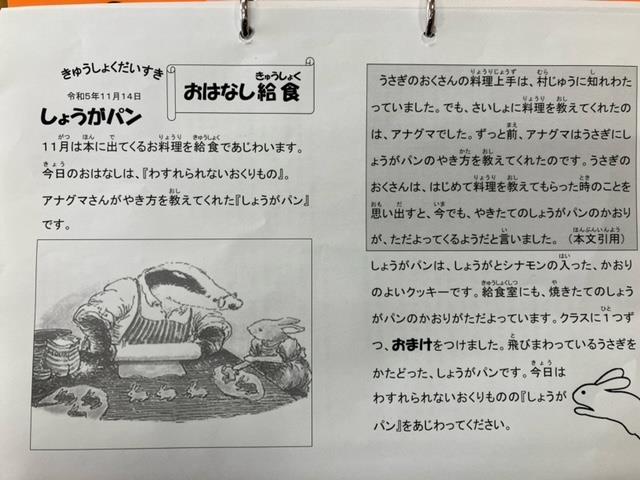 きゅうしょくだいすき
令和5年11月14日
おはなし給食
きゅうしょく
しょうがパン
11月は本に出てくるお料理を給食であじわいます。
今日のおはなしは、『わすれられないおくりもの』。
アナグマさんがやき方を教えてくれた『しょうがパン』
です。
うさぎのおくさんの料理上手は、村じゅうに知れわた
っていました。でも、さいしょに料理を教えてくれたの
は、アナグマでした。ずっと前、アナグマはうさぎにし
ょうがパンのやき方を教えてくれたのです。うさぎの
おくさんは、はじめて料理を教えてもらった時のことを
思い出すと、今でも、やきたてのしょうがパンのかおり
が、ただよってくるようだと言いました。（本文引用）
しょうがパンは、しょうがとシナモンの入った、かおり
のよいクッキーです。給食室にも、焼きたてのしょう
がパンのかおりがただよっています。クラスに1つず
つ、おまけをつけました。飛びまわっているうさぎを
かたどった、しょうがパンです。今日は
わすれられないおくりものの『しょうが
パン』をあじわってください。